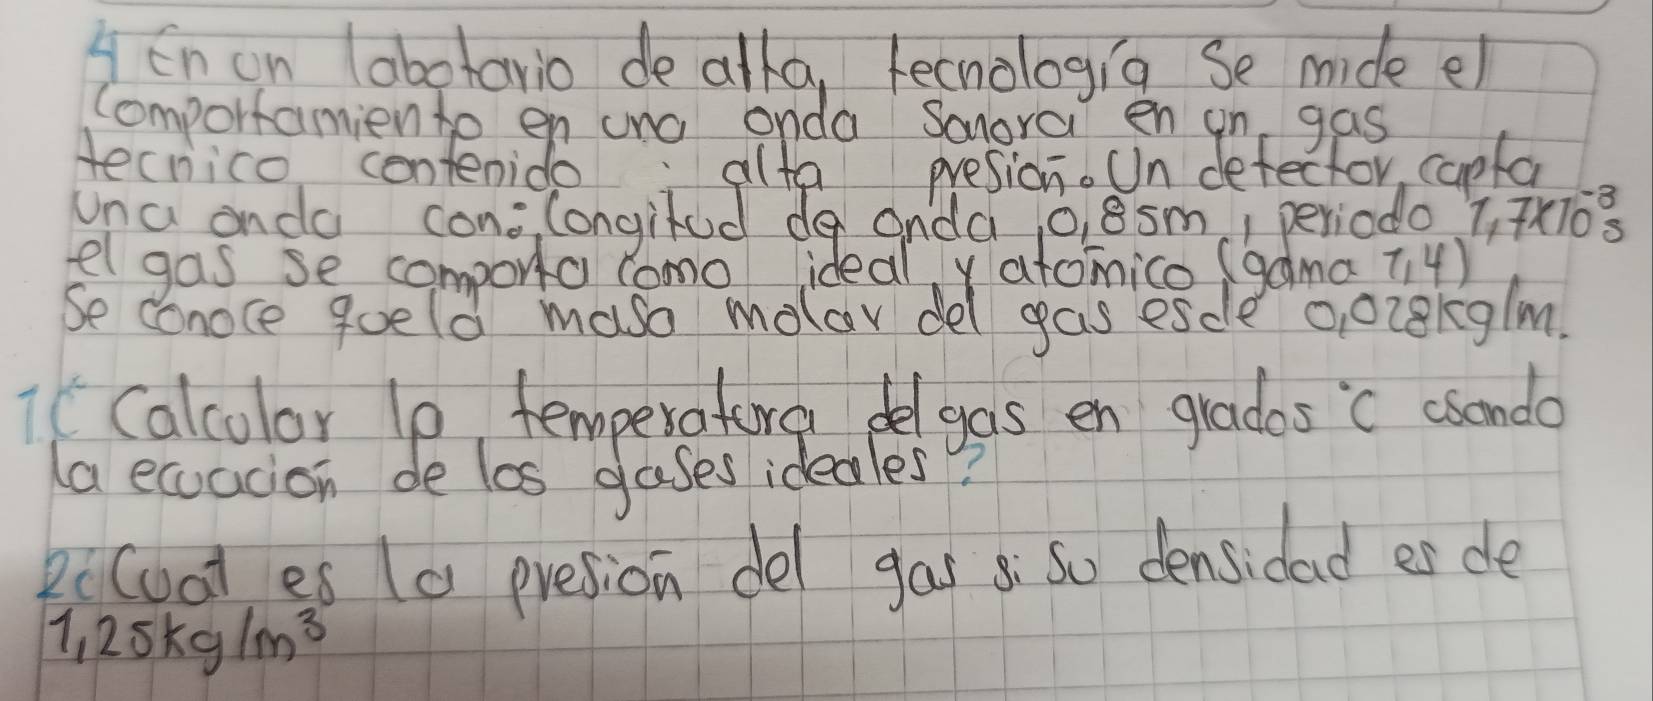 4 En un labotario de alta, tecnologia Se mide el
comportamiento en una onda Sonora en un gas
tecnico contenido alta presion. Un detector, capta
una onda con: longitud de onda 0,85m, periodo 1,7x10⁻³s
el gas se comporta como ideal y atomico (gama 1,4)
Se conoce que la masa molar del gas es de 0,028kg/m.
1¿ Calcular la temperatura del gas en grados °C usando
la ecuacion de los gases ideales?
2¿Cual es la presion del gas si su densidad es de
1,25kg/m³